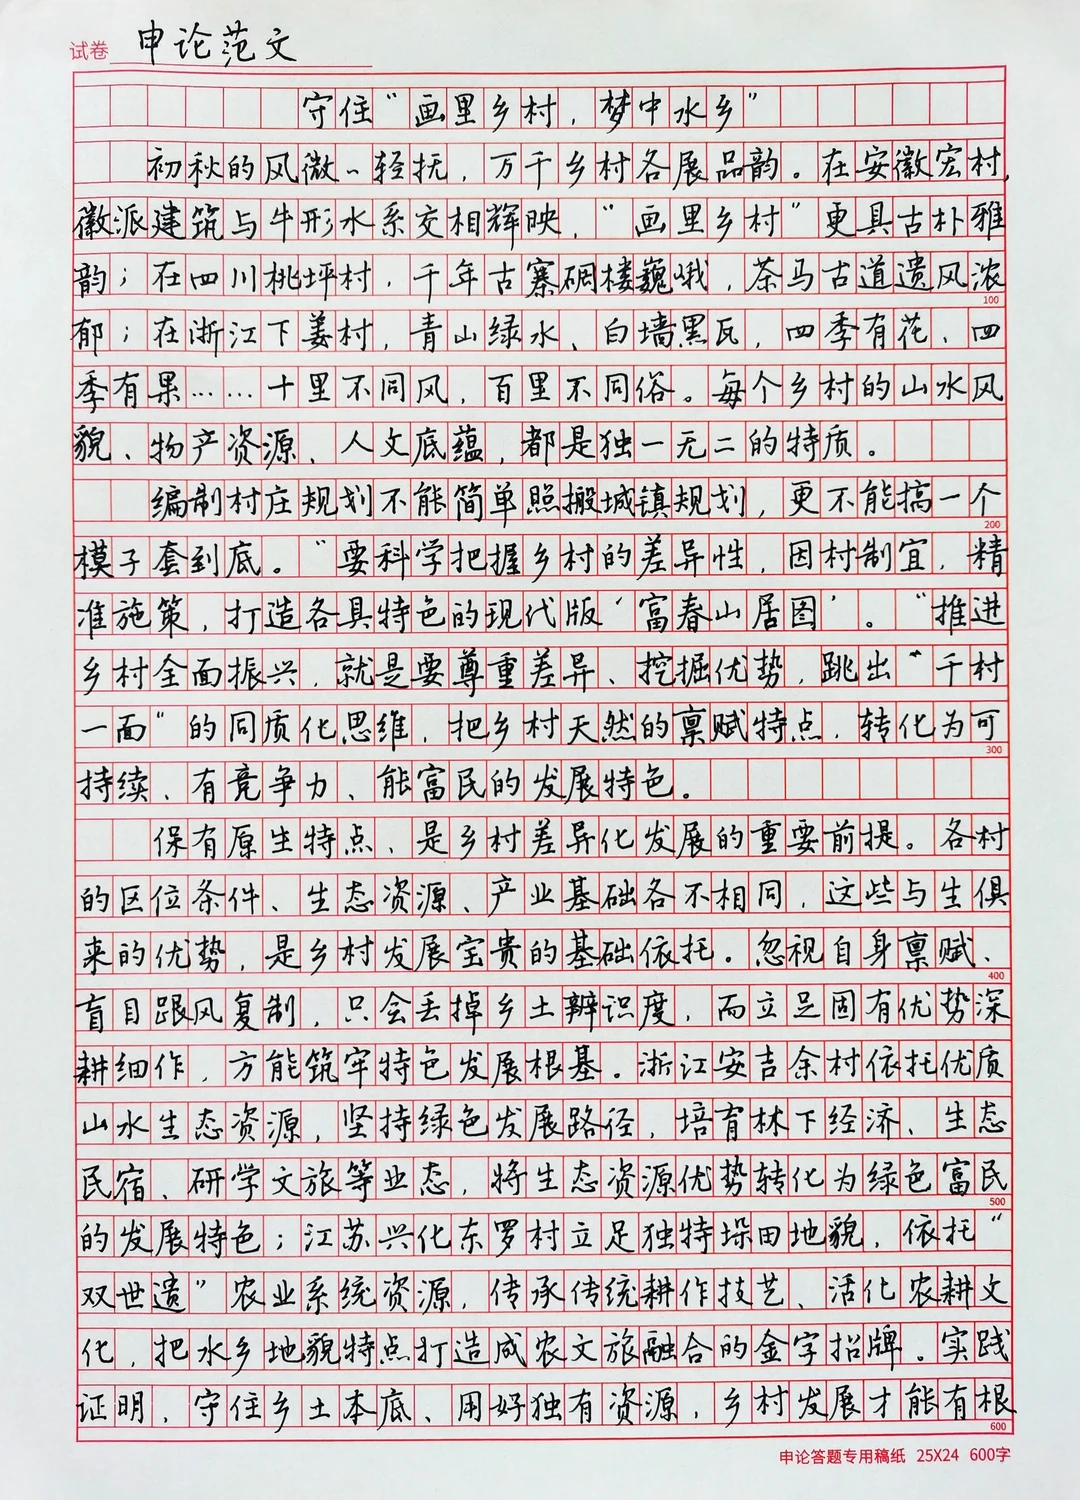 试卷 申论范文
守住“画里乡村，梦中水乡”
初秋的风微微轻抚，万千乡村各展品韵。在安徽宏村，
徽派建筑与牛形水系交相辉映，“画里乡村”更具古朴雅
韵；在四川桃坪村，千年古寨碉楼巍峨，茶马古道遗风浓
100
郁；在浙江下姜村，青山绿水、白墙黑瓦，四季有花、四
季有果……十里不同风，百里不同俗。每个乡村的山水风
貌、物产资源、人文底蕴，都是独一无二的特质。
编制村庄规划不能简单照搬城镇规划，更不能搞一个
200
模子套到底。“要科学把握乡村的差异性，因村制宜，精
准施策，打造各具特色的现代版‘富春山居图’。“推进
乡村全面振兴，就是要尊重差异、挖掘优势，跳出“千村
一面”的同质化思维，把乡村天然的禀赋特点，转化为可
300
持续、有竞争力、能富民的发展特色。
保有原生特点、是乡村差异化发展的重要前提。各村
的区位条件、生态资源、产业基础各不相同，这些与生俱
来的优势，是乡村发展宝贵的基础依托。忽视自身禀赋、
400
盲目跟风复制，只会丢掉乡土辨识度，而立足固有优势深
耕细作，方能筑牢特色发展根基。浙江安吉余村依托优质
山水生态资源，坚持绿色发展路径，培育林下经济、生态
民宿、研学文旅等业态，将生态资源优势转化为绿色富民
500
的发展特色；江苏兴化东罗村立足独特垛田地貌，依托“
双世遗”农业系统资源，传承传统耕作技艺、活化农耕文
化，把水乡地貌特点打造成农文旅融合的金字招牌。实践
证明，守住乡土本底、用好独有资源，乡村发展才能有根
600
申论答题专用稿纸 25X24 600字